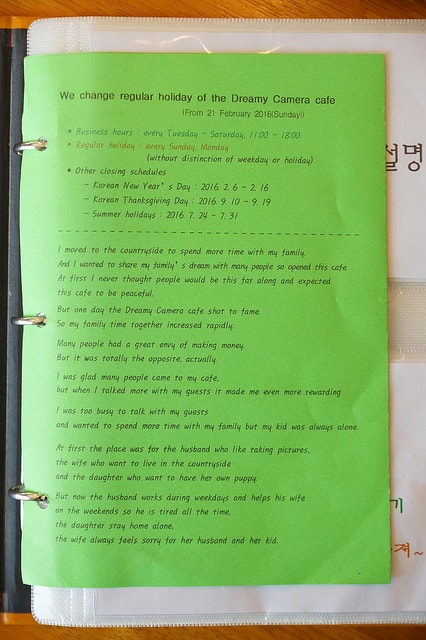 We change regular holiday of the Dreamy Camera cafe
(From 21 February 2016(Sunday))
• Business hours : every Tuesday - Saturday, 11:00 - 18:00
• Regular holiday : every Sunday, Monday
(without distinction of weekday or holiday)
• Other closing schedules
- Korean New Year's Day : 2016. 2. 6 - 2. 16
- Korean Thanksgiving Day : 2016. 9. 10 - 9. 19
- Summer holidays : 2016. 7. 24 - 7. 31
I moved to the countryside to spend more time with my family.
And I wanted to share my family's dream with many people so opened this cafe.
At first I never thought people would be this far along and expected
this cafe to be peaceful.
But one day the Dreamy Camera cafe shot to fame.
So my family time together increased rapidly.
Many people had a great envy of making money.
But it was totally the opposite, actually.
I was glad many people came to my cafe,
but when I talked more with my guests it made me even more rewarding
I was too busy to talk with my guests
and wanted to spend more time with my family but my kid was always alone.
At first the place was for the husband who like taking pictures,
the wife who want to live in the countryside
and the daughter who want to have her own puppy.
But now the husband works during weekdays and helps his wife
on the weekends so he is tired all the time,
the daughter stay home alone,
the wife always feels sorry for her husband and her kid.
설명
기
져~